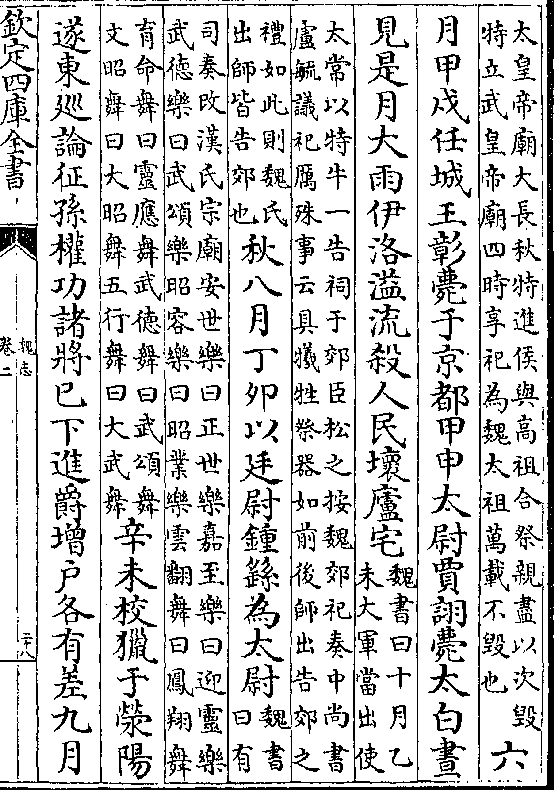 太皇帝廟大長秋特進侯與高祖合祭親盡以次毁
特立武皇帝廟四時享祀為魏太祖萬載不毁也
六
月甲戌任城王彰薨于京都甲申太尉賈詡薨太白晝
見是月大雨伊洛溢流殺人民壞廬宅
魏書曰十月乙
未大軍當出使
太常以特牛一告祠于郊臣松之按魏郊祀奏中尚書
盧毓議祀厲殊事云具犧牲祭器如前後師出告郊之
禮如此則魏氏
出師皆告郊也
秋八月丁卯以廷尉鍾繇為太尉
魏書
曰有
司奏改漢氏宗廟安世樂曰正世樂嘉至樂曰迎靈樂
武德樂曰武頌樂昭容樂曰昭業樂雲翻舞曰鳳翔舞
育命舞曰靈應舞武德舞曰武頌舞
文昭舞曰大昭舞五行舞曰大武舞
辛未校獵于滎陽
遂東廵論征孫權功諸將已下進爵增户各有差九月
欽定四庫全書
魏志
卷二
二十八